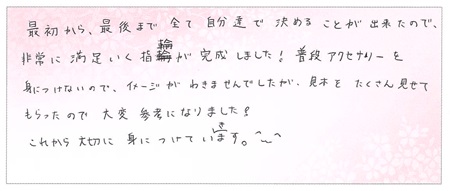 最初から、最後まで全て自分達で決めることが出来たので、
非常に満足いく指輪が完成しました！普段アクセサリーを
身につけないので、イメージがわきませんでしたが、見本をたくさん見せて
もらったので大変参考になりました！
これから大切に身につけていきます。^‿^